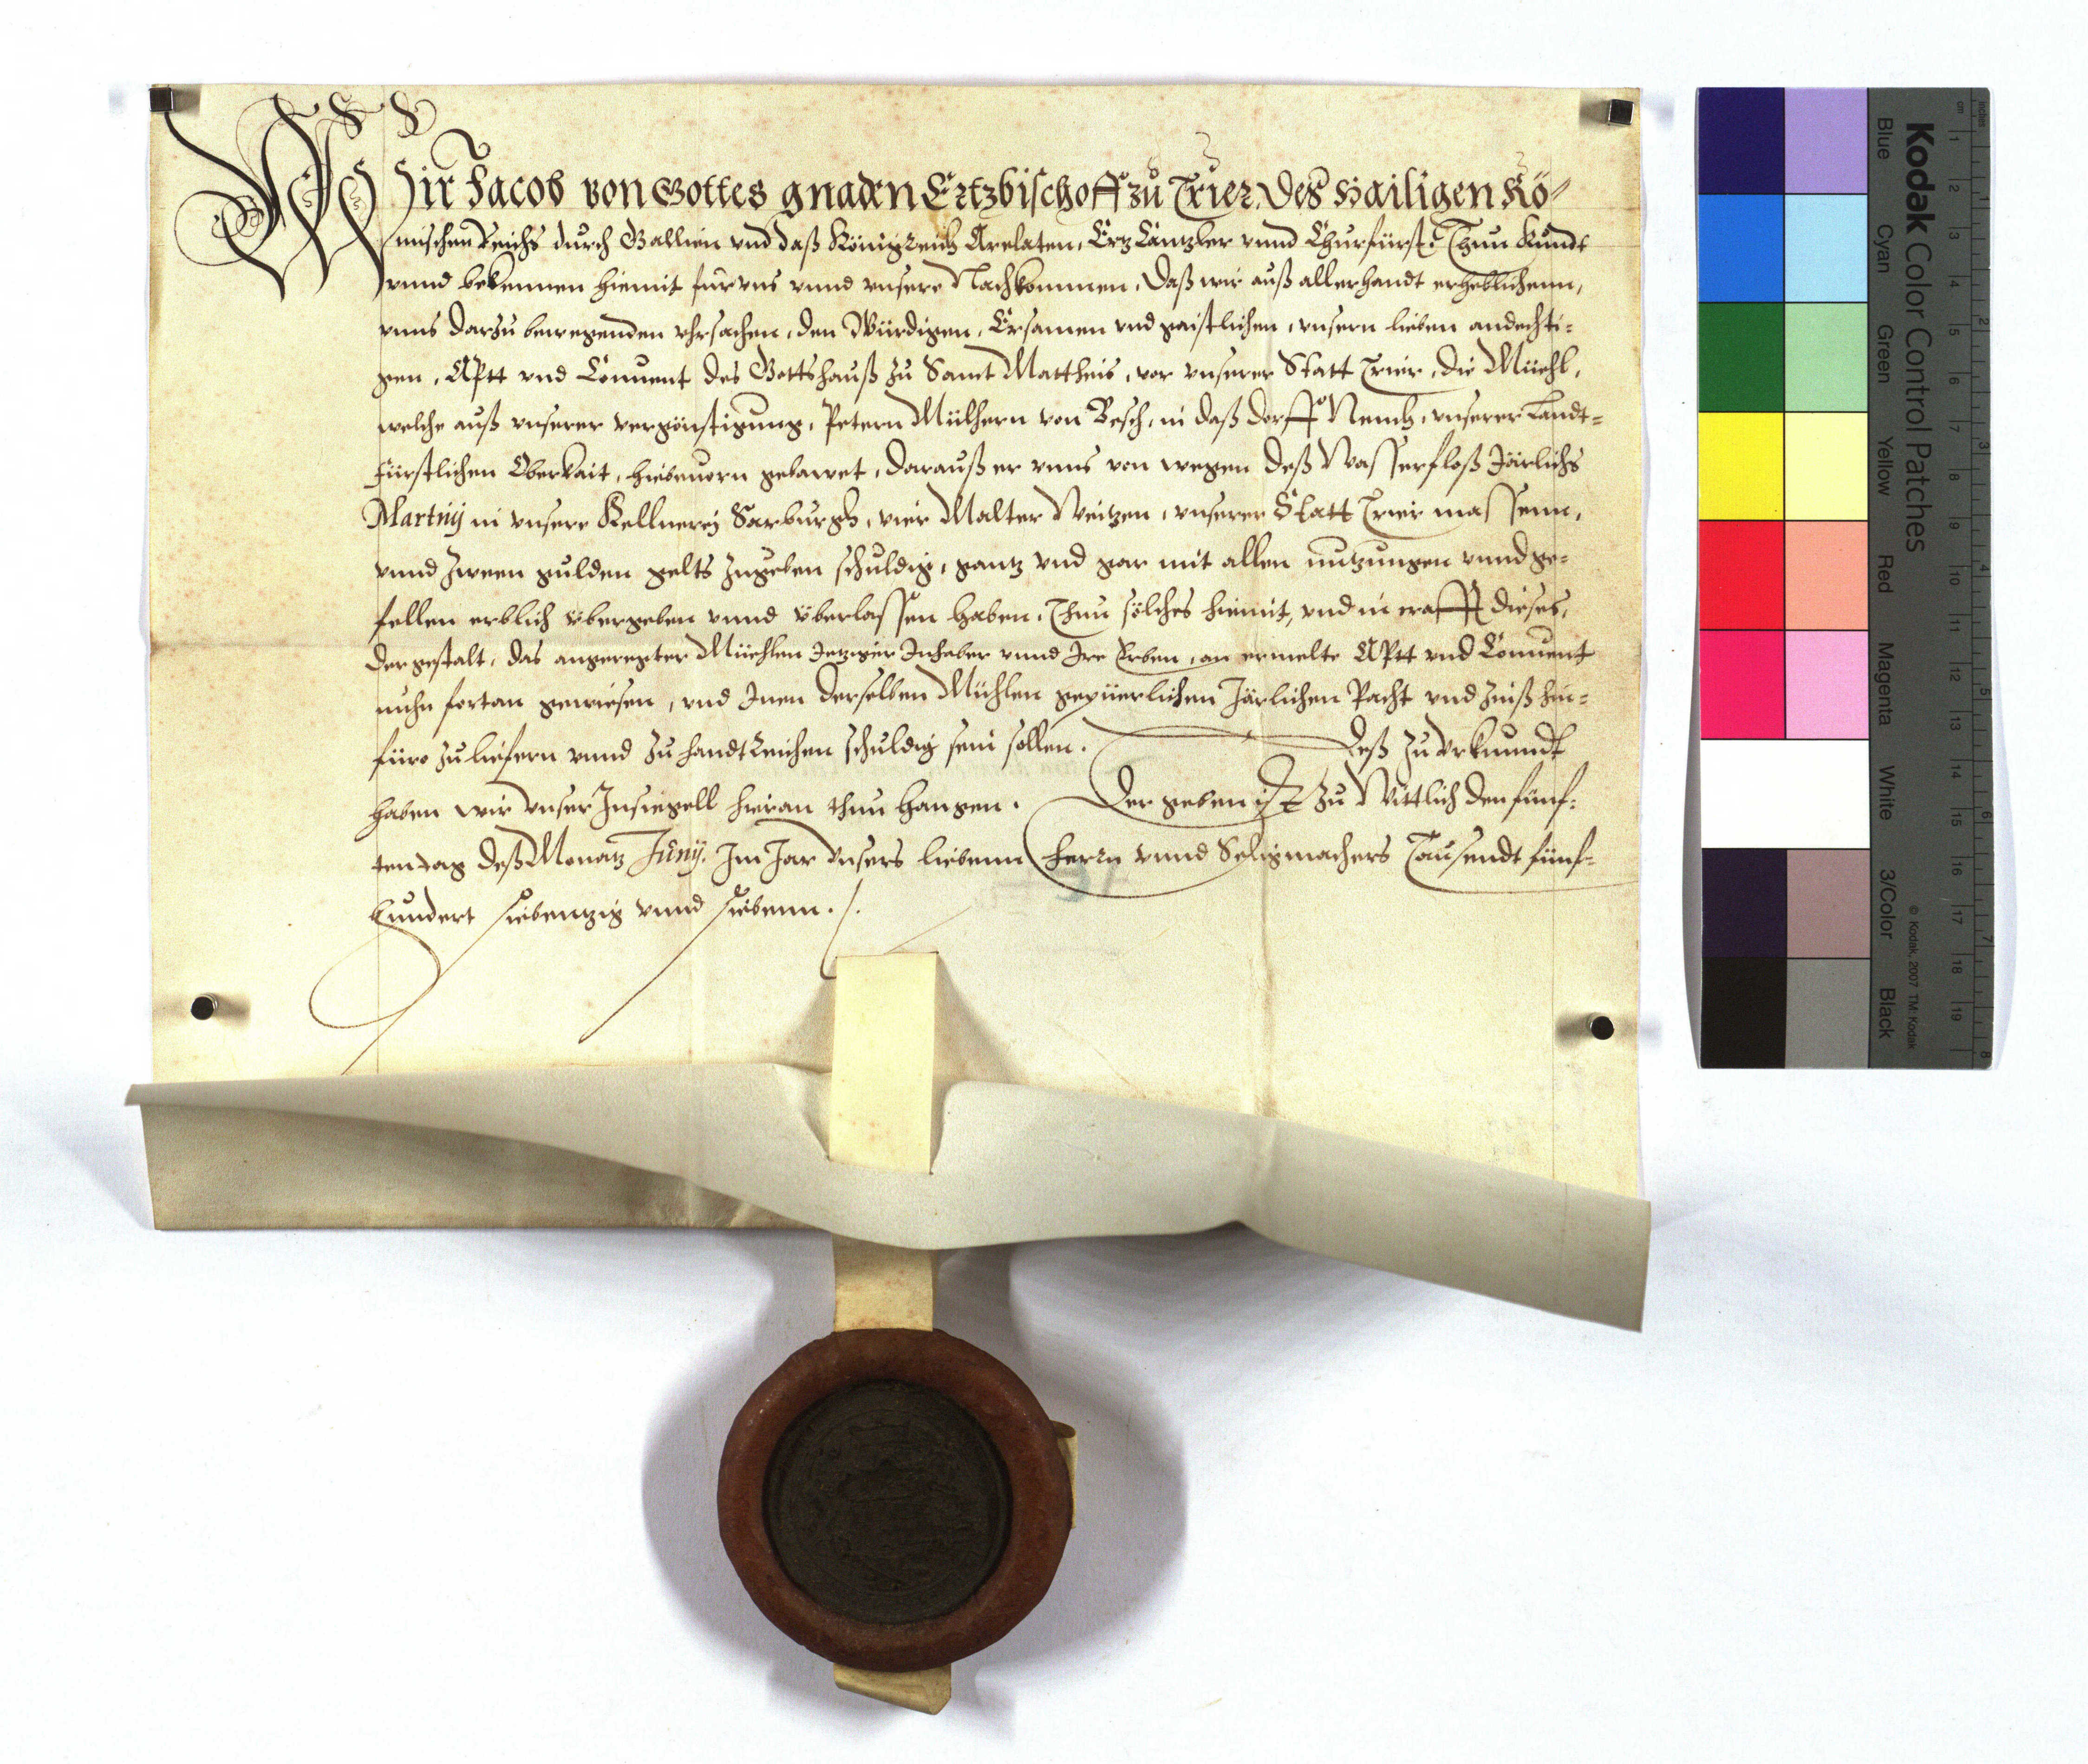 Wir Jacob von Gottes gnaden Ertzbischoff zu Trier, des Hailigen Rö=
mischen Reichs durch Gallien vnd daß Königreich Arelaten, Ertz Cantzler vnnd Churfürst, Thun kundt
vnnd bekennen hiemit für vns vnnd vnsere Nachkommen, Daß wir auß allerhandt erheblichenn,
vnns darzu bewegenden vhrsachen, den Würdigen, Ersamen vnd gaistlichen, vnsern lieben andechti=
gen, Aptt vnd Conuent des Gottshauß zu Sanct Mattheis, vor vnserer Statt Trier, die Müehl,
welche auß vnserer vergönstigung, Petern Mülhern von Besch, in daß dorff Nench, vnserer Landt=
fürstlichen Oberkait, hiebeuorn gebawet, darauß er vnns von wegen deß Wasserfloß Järlichs
Martinj in vnsere Kellnerej Sarburgh, vier Malter Weitzen, vnserer Statt Trier massenn,
vnnd zween gulden gelts zugeben schuldig, gantz vnd gar mit allen nutzungen vnnd ge=
fellen erblich übergeben vnnd überlassen haben, Thun solches hiemit, vnd in crafft dieses,
dergestalt, das angeregter Müehlen Jetziger Inhaber vnnd Ire Erben, an ermelte Aptt vnd Conuent
nuhn fortan gewiesen, vnd Inen derselben Mühlen gepüerlichen Järlichen Pacht vnd Zinß hin=
füro zu liefern vnnd zu handtreichen schuldig sein sollen. Deß zu Vrkunndt
haben wir vnser Insiegell hieran thun hangen. Der geben ist zu Wittlich den fünf=
ten tag deß Monatz Junÿ. Im Jar vnsers liebenn herrn vnnd Seligmachers Tausendt fünf=
hundert siebentzig vnnd siebenn.
Kodak Color Control Patches
Blue Cyan Green Yellow Red Magenta White 3/Color Black
© Kodak, 2007 TM: Kodak
inches 1 2 3 4 5 6 7 8
cm 1 2 3 4 5 6 7 8 9 10 11 12 13 14 15 16 17 18 19